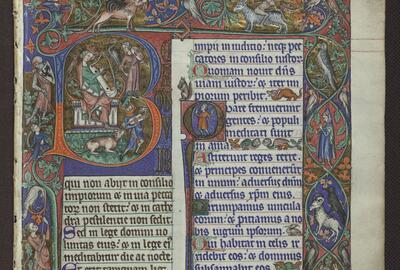 B
qui non abijt in consilio
impiorum & in uia pecca
torum non stetit: & in cathe
dra pestilentie non sedit.
Sed in lege domini uo
luntas eius: & in lege ei'
meditabitur die ac nocte.
impii in iudicio: neqʒ pec
catores in consilio iustoꝝ
Quoniam nouit dñs
uiam iustoꝝ: & iter im
piorum peribit.
Quare fremuerunt
gentes: & populi
meditati sunt
in ania
Astiterunt reges terre:
& principes conuenerunt
in unum: aduersus dñm
& aduersus xpm eius.
Dirumpamus uincula
eorum: & proiciamus a no
bis iugum ipsorum.
Qui habitat in celis irri
debit eos: & dominus
subsannabit eos.